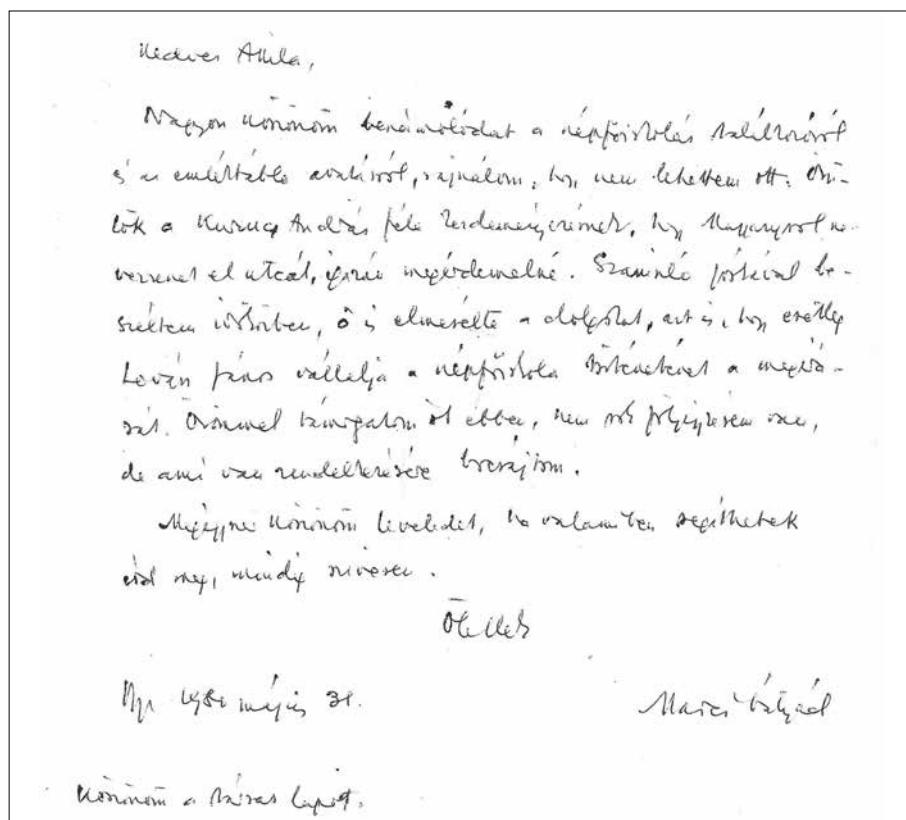 Kedves Attila,
Nagyon köszönöm beszámolódat a népfőiskolás találkozóról
és az emléktábla avatásról, sajnálom, hogy nem lehettem ott. Örü-
lök a Kuruc András féle kezdeményezésnek, hogy Magyaryról ne-
vezzenek el utcát, igazán megérdemelné. Szamkó Jóskával be-
széltem időközben, ő is elmesélte a dolgokat, azt is, hogy esetleg
János vállalja a népfőiskola történetének a megírá-
sát. Örömmel támogatom őt ebben, nem sok följegyzésem van,
de ami van rendelkezésére bocsájtom.
Mégegyszer köszönöm leveledet, ha valamiben segíthetek
írd meg, mindig szívesen.
Ölellek
május 31.
Marci bátyád
Köszönöm a lapot.